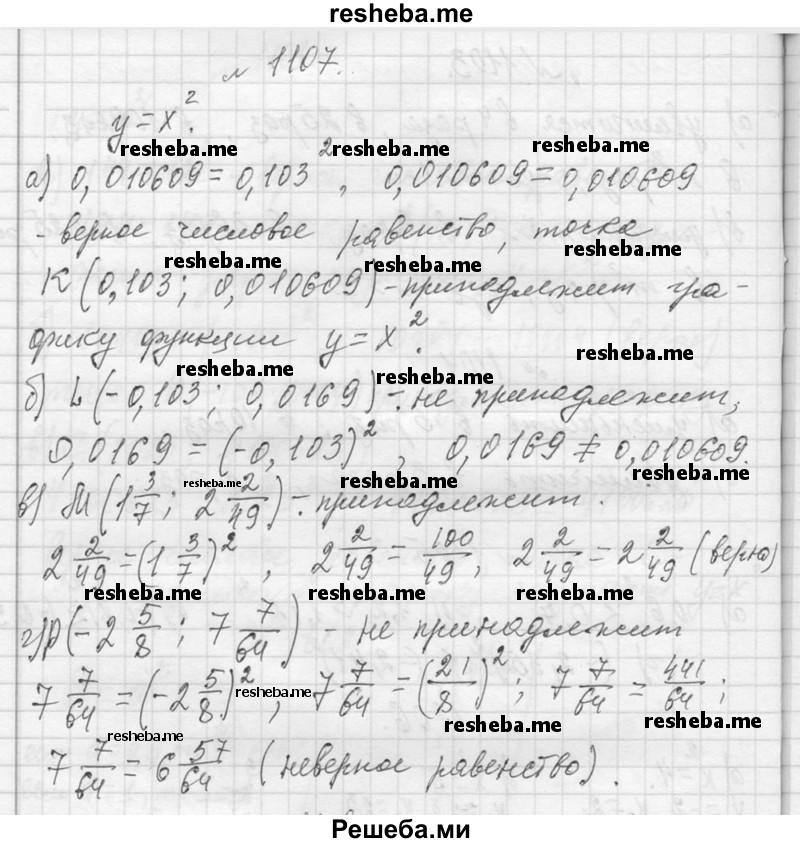 resheba.me
№ 1107.
y = x².
resheba.me resheba.me
а) 0,010609 = 0,103², 0,010609 = 0,010609
- верное числовое равенство, точка
resheba.me resheba.me resheba.me
K (0,103; 0,010609) - принадлежит гра-
фику функции y = x².
resheba.me resheba.me resheba.me
б) L (-0,103; 0,0169) - не принадлежит;
0,0169 = (-0,103)², 0,0169 ≠ 0,010609.
resheba.me resheba.me resheba.me
в) M (1 3/7; 2 2/49) - принадлежит.
2 2/49 = (1 3/7)², 2 2/49 = 100/49, 2 2/49 = 2 2/49 (верно)
resheba.me resheba.me resheba.me
г) P (-2 5/8; 7 7/64) - не принадлежит
7 7/64 = (-2 5/8)²; 7 7/64 = (21/8)²; 7 7/64 = 441/64;
resheba.me resheba.me resheba.me
resheba.me
7 7/64 = 6 57/64 (неверное равенство).
Решеба.ми